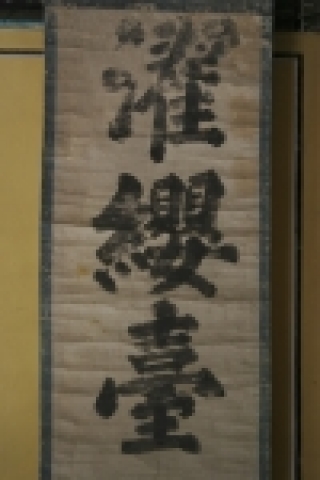 濯纓臺